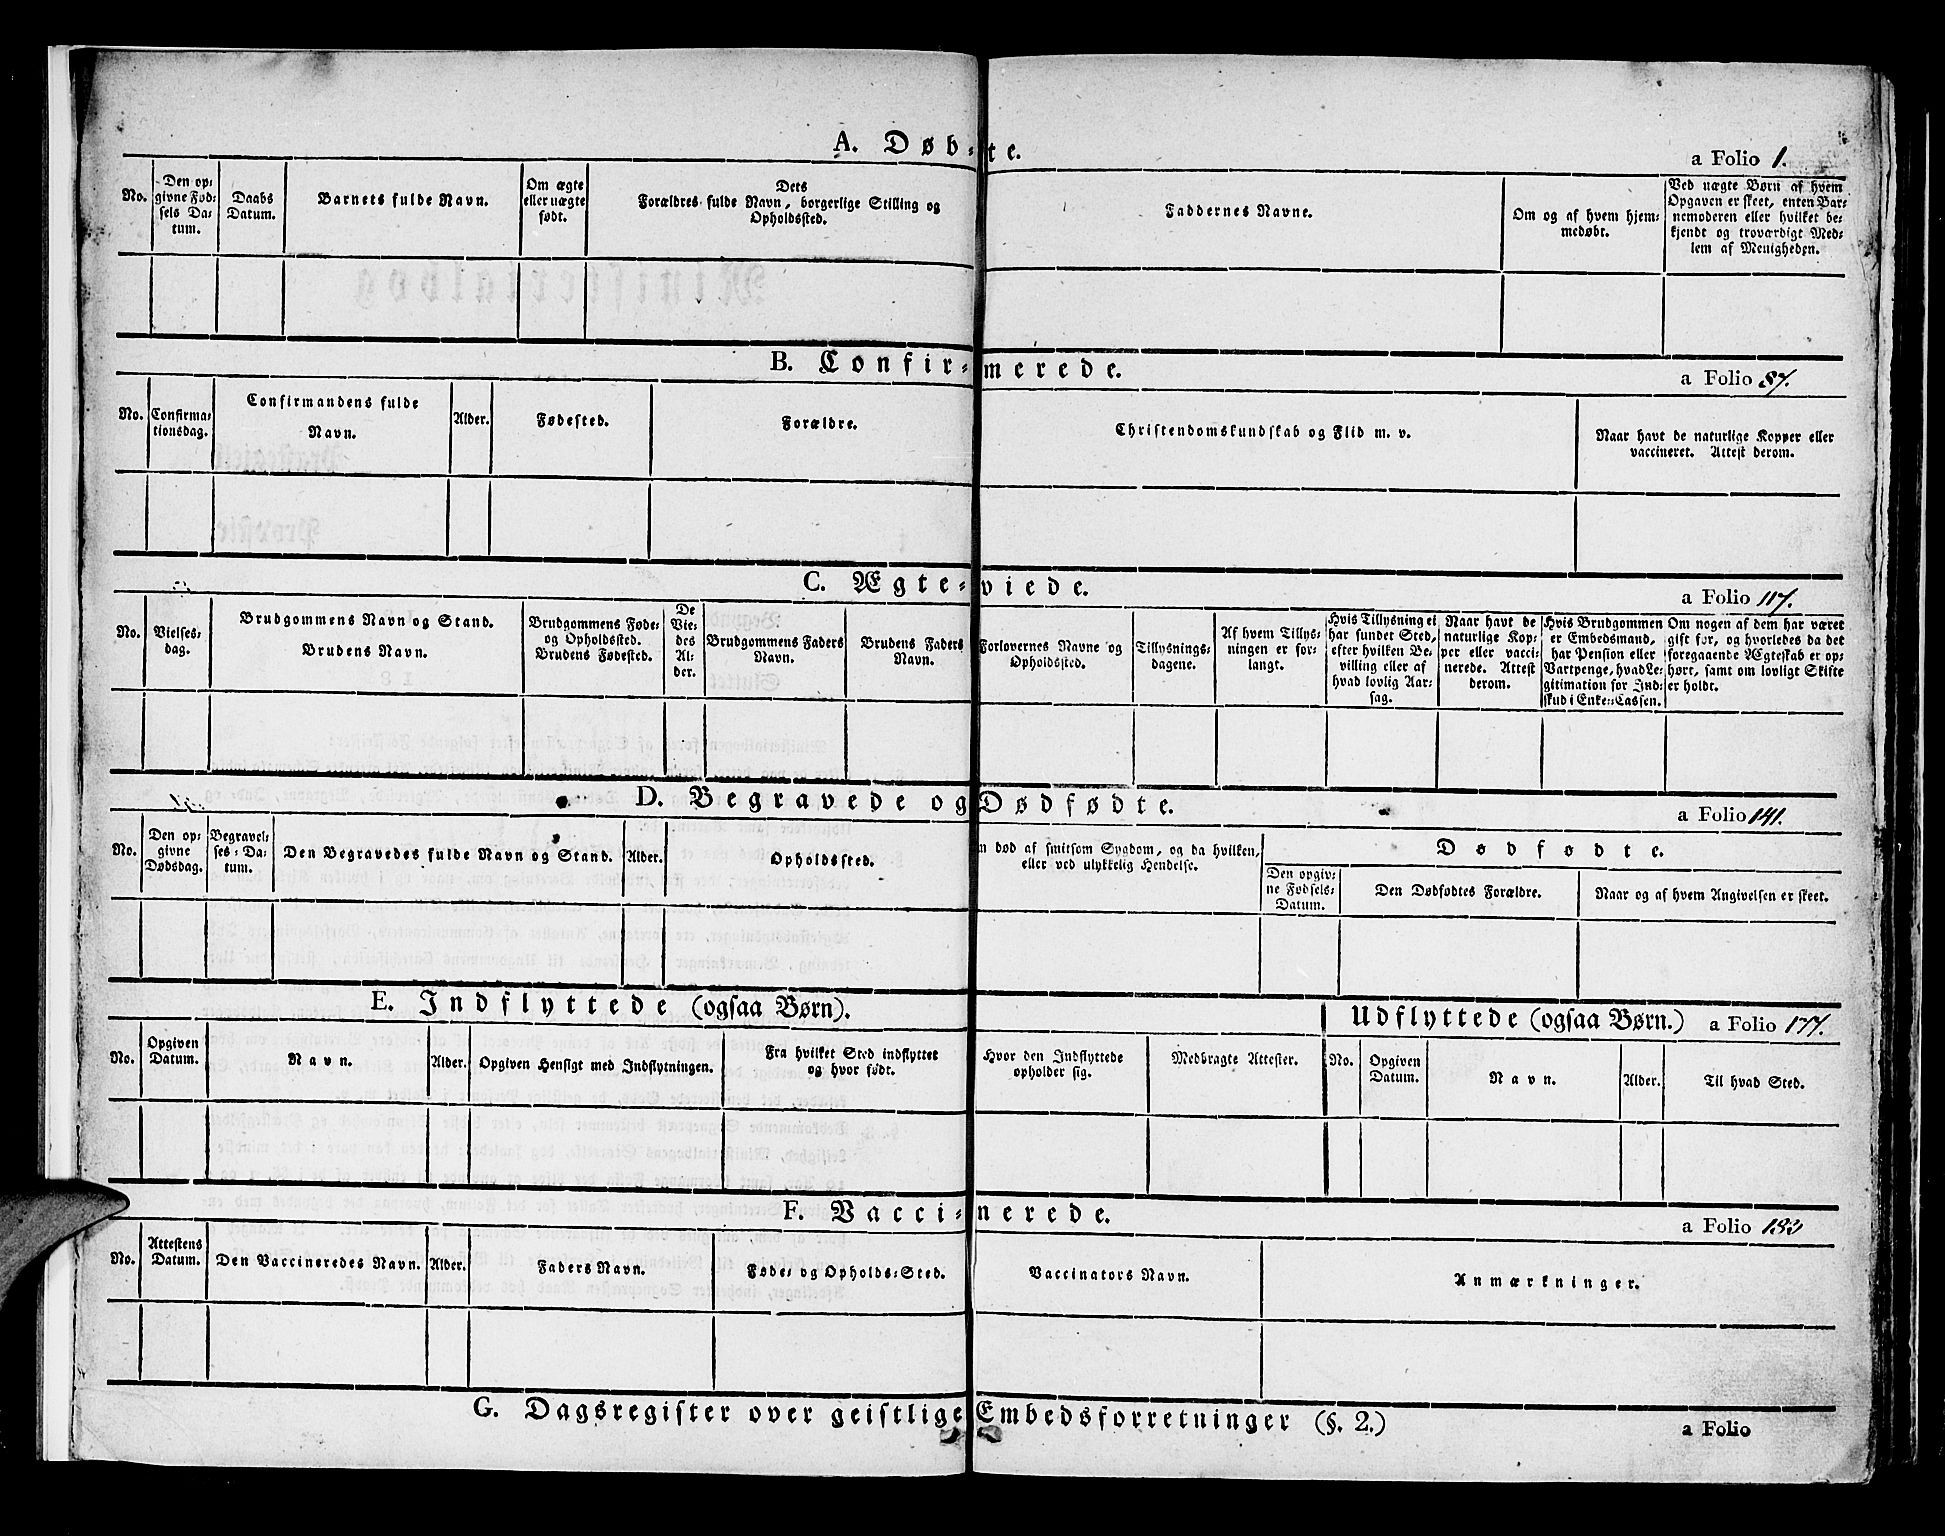 A. Døb-te.
a Folio 1.
No.
Den op-
givne Fød-
sels Da-
tum.
Daabs
Datum.
Barnets fulde Navn.
Om ægte
eller uægte
født.
Dets
Forældres fulde Navn, borgerlige Stilling og
Opholdssted.
Faddernes Navne.
Om og af hvem hjem-
medøbt.
Ved uægte Børn af hvem
Opgaven er skeet, enten Bar-
nemoderen eller hvilket be-
kjendt og troværdigt Med-
lem af Menigheden.
B. Confir-merede.
a Folio 87.
No.
Confirma-
tionsdag.
Confirmandens fulde
Navn.
Alder.
Fødested.
Forældre.
Christendomskundskab og Flid m. v.
Naar havt de naturlige Kopper eller
vaccineret. Attest derom.
C. Ægte-viede.
a Folio 117.
No.
Vielses-
dag.
Brudgommens Navn og Stand.
Brudens Navn.
Brudgommens Føde-
og Opholdssted.
Brudens Fødested.
De
Vie-
des
Al-
der.
Brudgommens Faders
Navn.
Brudens Faders
Navn.
Forlovernes Navne og
Opholdssted.
Tillysnings-
dagene.
Af hvem Tillys-
ningen er for-
langt.
Hvis Tillysning ei
har fundet Sted,
efter hvilken Be-
villing eller af
hvad lovlig Aar-
sag.
Naar havt de
naturlige Kop-
per eller vacci-
nerede. Attest
derom.
Hvis Brudgommen
er Embedsmand,
har Pension eller
Vartpenge, hvad Le-
gitimation for Ind-
skud i Enke-Cassen.
Om nogen af dem har været
gift før, og hvorledes da det
foregaaende Ægteskab er op-
hørt, samt om lovligt Skifte
er holdt.
D. Begravede og Dødfødte.
a Folio 141.
No.
Den op-
givne
Dødsdag.
Begravel-
ses-Da-
tum.
Den Begravedes fulde Navn og Stand.
Alder.
Opholdssted.
død af smitsom Sygdom, og da hvilken,
eller ved ulykkelig Hendelse.
Dødfødte.
Den opgiv-
ne Fødsels-
Datum.
Den Dødfødtes Forældre.
Naar og af hvem Angivelsen er skeet.
E. Indflyttede (ogsaa Børn).
Udflyttede (ogsaa Børn.) a Folio 177.
No.
Opgiven
Datum.
Navn.
Alder.
Opgiven Hensigt med Indflytningen.
Fra hvilket Sted indflyttet
og hvor født.
Hvor den Indflyttede
opholder sig.
Medbragte Attester.
No.
Opgiven
Datum.
Navn.
Alder.
Til hvad Sted.
F. Vacci-nerede.
a Folio 183
No.
Attestens
Datum.
Den Vaccineredes Navn.
Alder.
Faders Navn.
Føde- og Opholds-Sted.
Vaccinators Navn.
Anmærkninger.
G. Dagsregister over geistlige Embedsforretninger (§. 2.)
a Folio